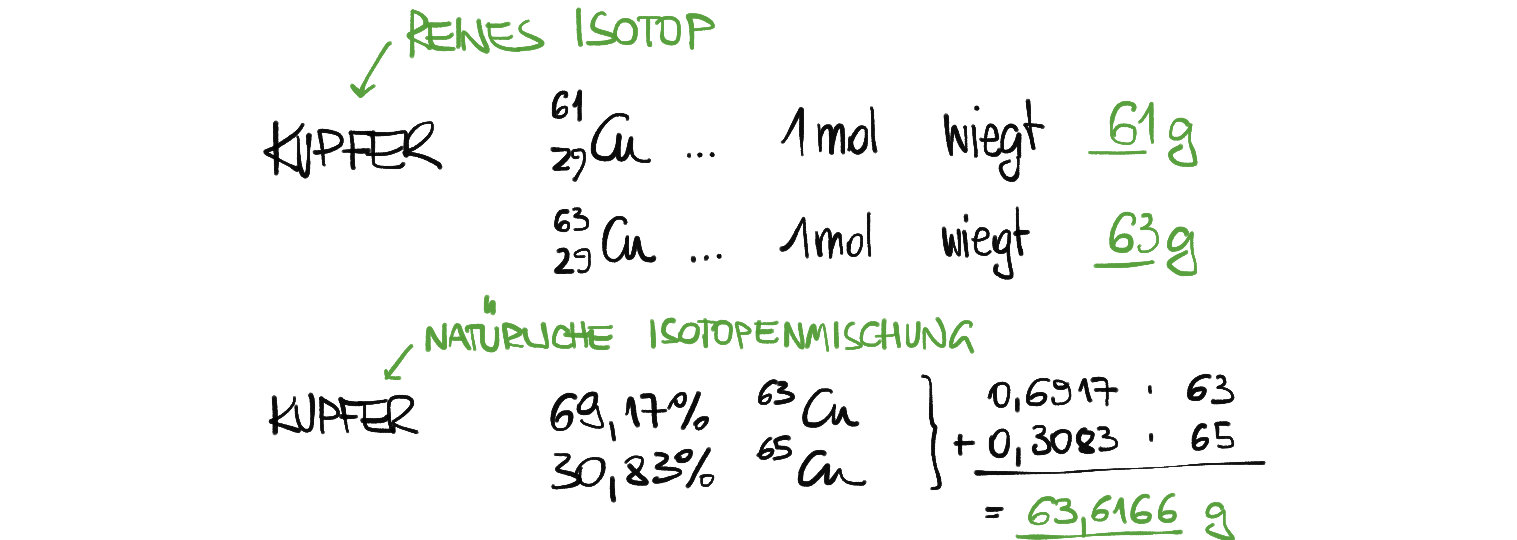 REINES ISOTOP
KUPFER ⁶¹₂₉Cu ... 1 mol wiegt 61 g
⁶³₂₉Cu ... 1 mol wiegt 63 g
NATÜRLICHE ISOTOPENMISCHUNG
KUPFER 69,17% ⁶³Cu } 0,6917 · 63
30,83% ⁶⁵Cu + 0,3083 · 65
= 63,6166 g